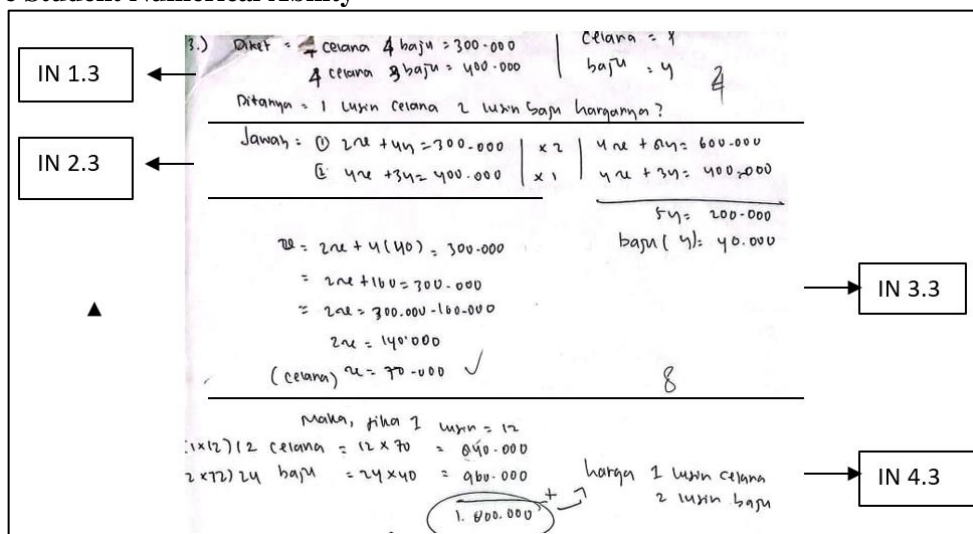 Student Numerical Ability
IN 1.3
3.) Diket = 4 celana 4 baju = 300.000 | celana = x
4 celana 3 baju = 400.000 | baju = y
2
Ditanya = 1 lusin celana 2 lusin baju harganya?
IN 2.3
Jawab = ① 2x + 4y = 300.000 | x 2 | 4x + 8y = 600.000
② 4x + 3y = 400.000 | x 1 | 4x + 3y = 400.000
5y = 200.000
baju (y) = 40.000
= 2x + 4(40) = 300.000
= 2x + 160 = 300.000
IN 3.3
= 2x = 300.000 - 160.000
2x = 140.000
(celana) x = 70.000 ✓
8
Maka, jika 1 lusin = 12
(1x12) 12 celana = 12 x 70 = 840.000
2 x 12) 24 baju = 24 x 40 = 960.000
+
harga 1 lusin celana
2 lusin baju
1.800.000
IN 4.3